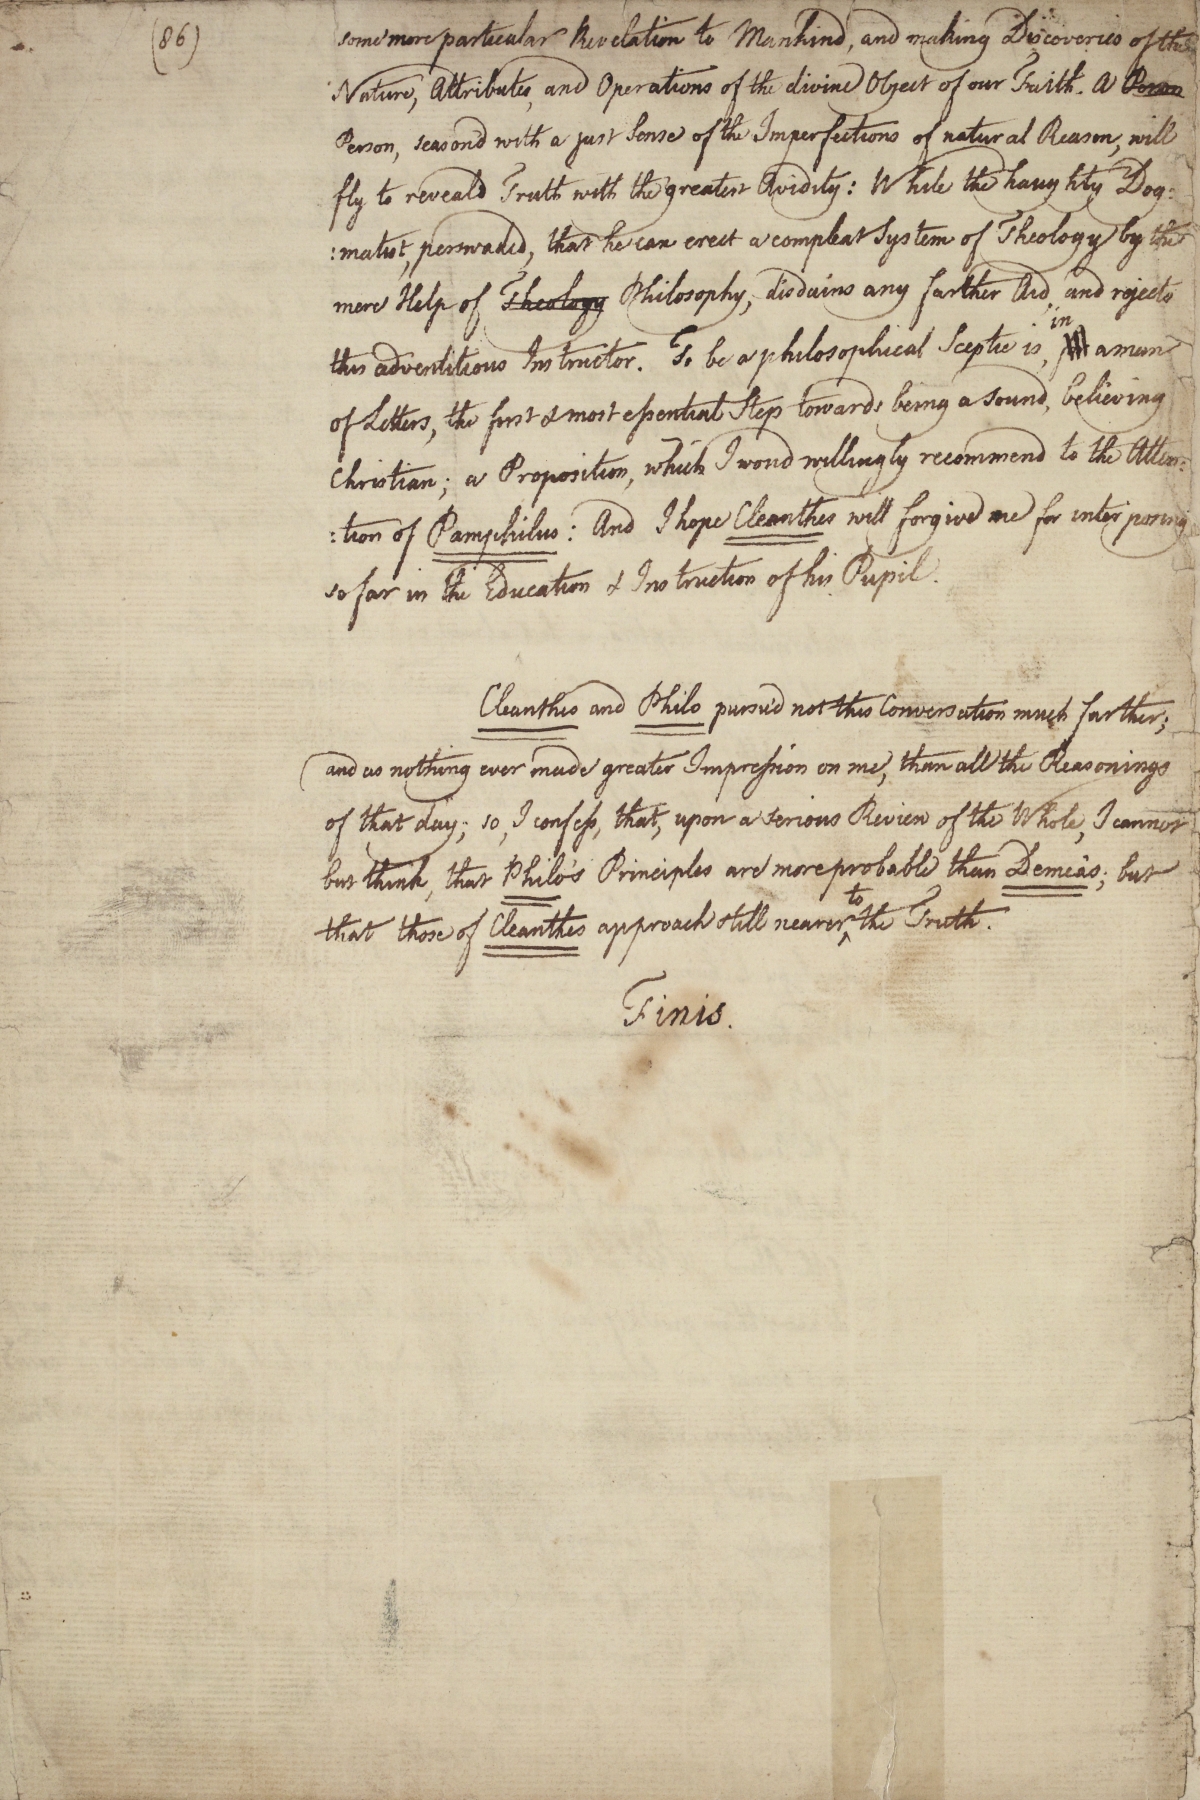 (86)
some more particular Revelation to Mankind, and making Discoveries of the
Nature, Attributes, and Operations of the divine Object of our Faith. A Person
Person, seasond with a just Sense of the Imperfections of natural Reason, will
fly to reveald Truth with the greatest Avidity: While the haughty Dog:
:matist, perswaded, that he can erect a compleat System of Theology by the
mere Help of Theology Philosophy, disdains any farther Aid, and rejects
in
this adventitious Instructor. To be a philosophical Sceptic is, a man
of Letters, the first & most essential Step towards being a sound, believing
Christian; a Proposition, which I woud willingly recommend to the Atten:
:tion of Pamphilus: And I hope Cleanthes will forgive me for interposing
so far in the Education & Instruction of his Pupil.
Cleanthes and Philo pursu'd not this Conversation much farther;
and as nothing ever made greater Impression on me, than all the Reasonings
of that day; so, I confess, that, upon a serious Review of the Whole, I cannot
but think, that Philo's Principles are more probable than Demea's; but
to
that those of Cleanthes approach still nearer the Truth.
Finis.